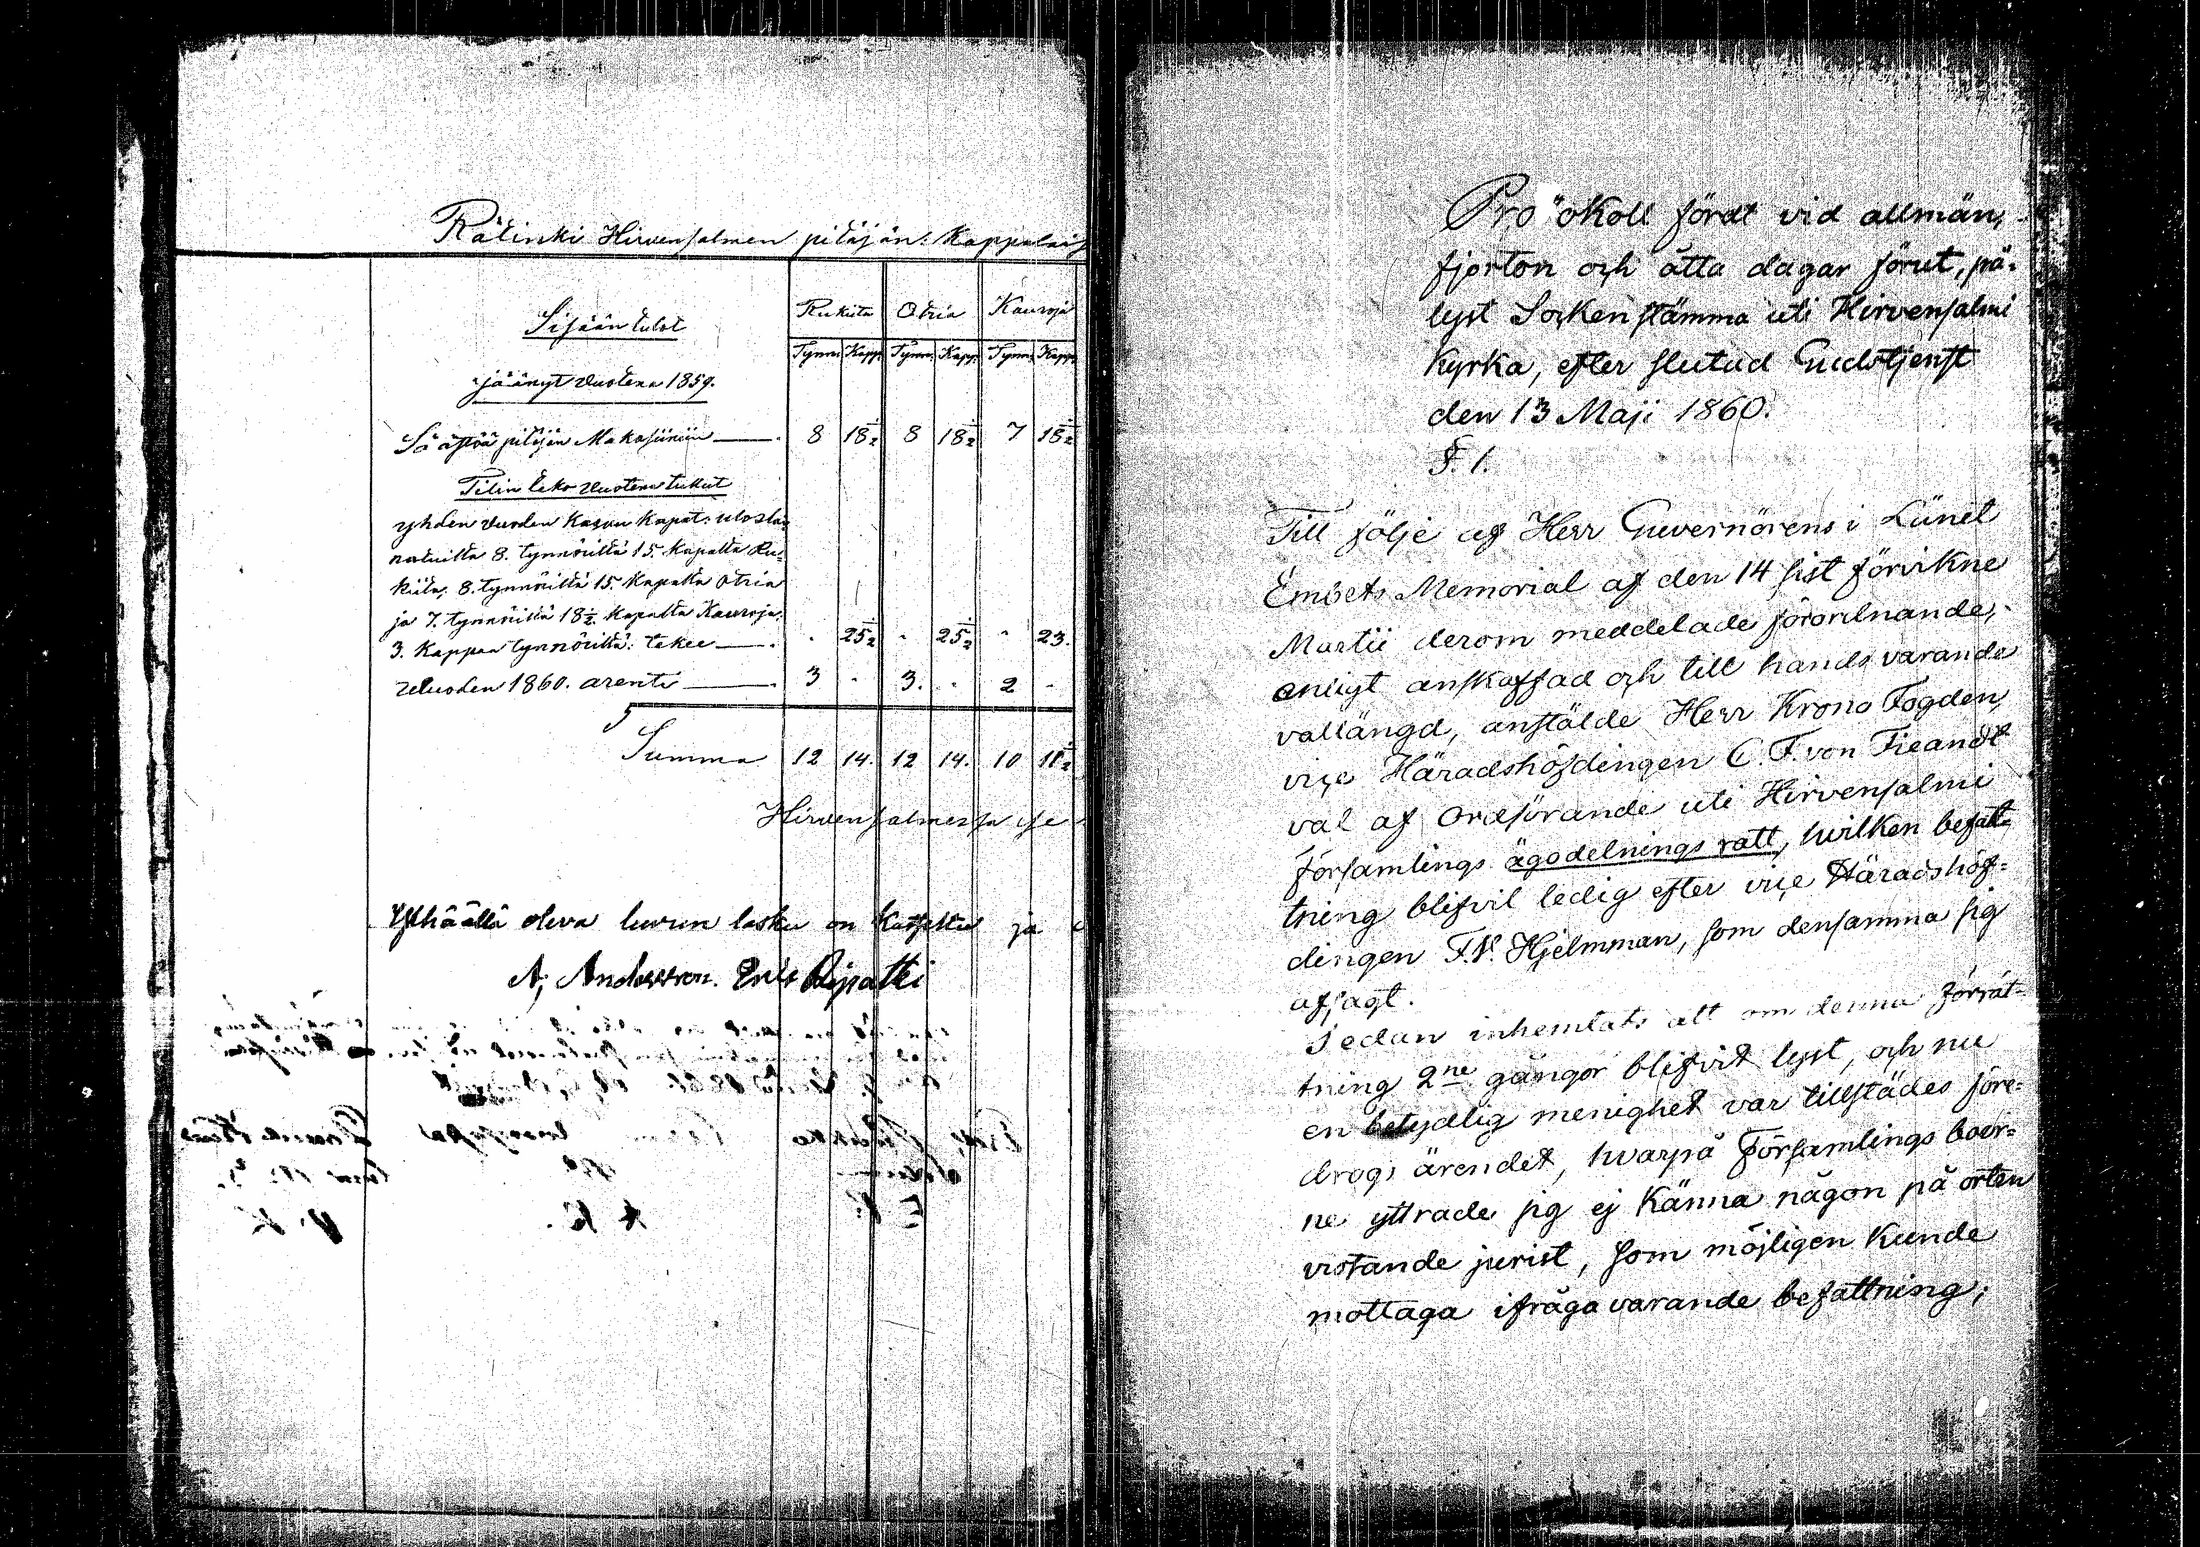 Räkinki Hirvensalmen pitäjän: Kappalais
Sisään tulot
Rukiita Otria Kauroja
Tynnr. Kapp. Tynnr. Kapp. Tynnr. Kapp.
jäänyt Vuotena 1859.
Säästöä pitäjän Makasiiniin 8 18½ 8 18½ 7 18½
Tilin Teko Vuotena tullut
yhden vuoden Kasvu Kapat: uloslai-
natuilta 8. tynnörillä 15. Kapalta Ru-
kiita, 8. tynnörillä 15. Kapalta Otria
ja 7. tynnörillä 18½ Kapalta Kauroja,
3. Kappaa tynnöriltä: tekee . 25½ " 25½ " 23.
Vuoden 1860. arenti 3 - 3. - 2 -
Summa 12 14. 12 14. 10 11½
Hirvensalmessa
Ylhäällä oleva luvun lasku on Katsottu ja
A, Andersson. Eric Ripatti
Protokoll fördt vid allmän,
fjorton och åtta dagar förut, på-
lyst Sockenstämma uti Hirvensalmi
Kyrka, efter slutad Gudstjenst
den 13 Maji 1860.
§. 1.
Till följe af Herr Guvernörens i Länet
Embets Memorial af den 14 sist förvikne
Martii derom meddelade förordnande,
enligt anskaffad och till hands varande
vallängd, anstälde Herr Krono Fogden,
viçe Häradshöfdingen C. F. von Fieandt
val af Ordförande uti Hirvensalmi
församlings ägodelnings rätt, hvilken befatt-
tning blifvit ledig efter viçe Häradshöf-
dingen F. V. Hjelmman, som densamma sig
afsagt.
Sedan inhemtats att om denna förrät-
tning 2ne gångor blifvit lyst, och nu
en betydlig menighet var tillstädes före-
drogs ärendet, hvarpå Församlings boer-
ne yttrade sig ej Känna någon på orten
vistande jurist, som möjligen Kunde
mottaga ifrågavarande befattning;